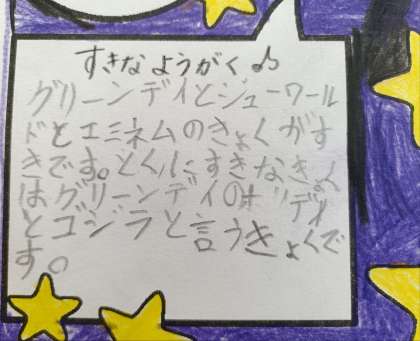 すきなようがく♪
グリーンデイとジューワール
ドとエミネムのきょくがす
きです。とくにすきなきょく
はグリーンデイのホリデイ
とゴジラと言うきょくで
す。